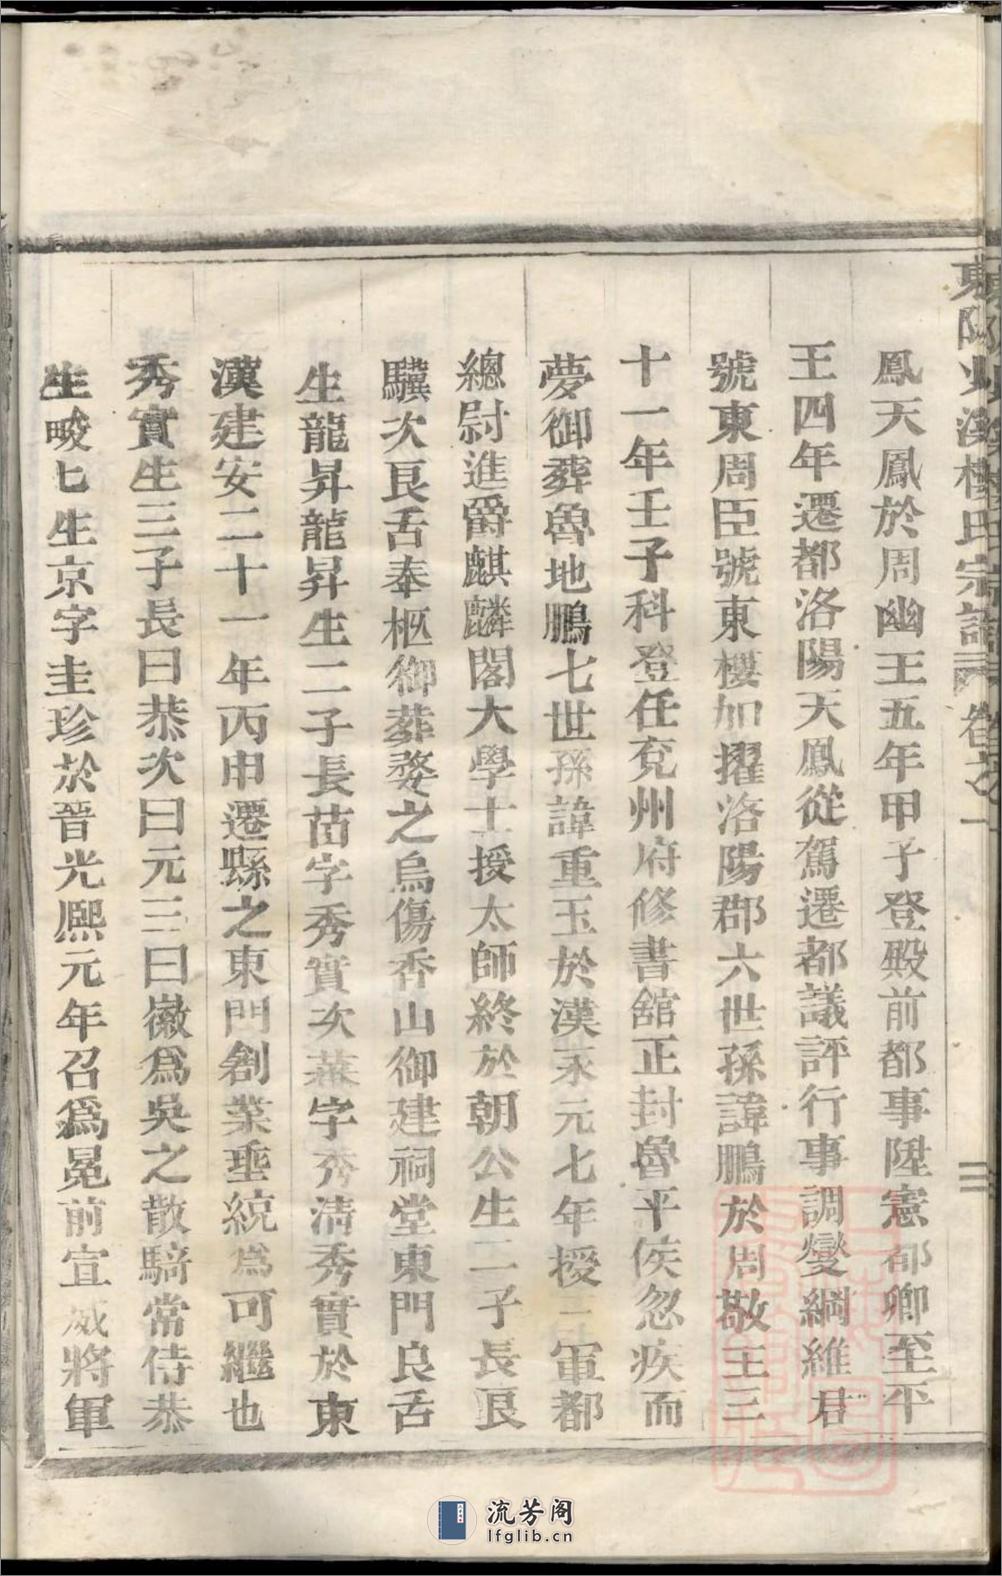 鳳天鳳於周幽王五年甲子登殿前都事陞憲都卿至平
王四年遷都洛陽天鳳從駕遷都議評行事調燮綱維君
號東周臣號東樓加擢洛陽郡六世孫諱鵬於周敬王三
十一年壬子科登任兗州府修書舘正封魯平侯忽疾而
夢御葬魯地鵬七世孫諱重玉於漢永元七年授三軍都
總尉進爵麒麟閣大學士授太師終於朝公生二子長艮
驥次艮舌奉柩御葬婺之烏傷香山御建祠堂東門良舌
生龍昇龍昇生二子長苗字秀實次蕋字秀清秀實於東
漢建安二十一年丙申遷縣之東門創業埀統爲可繼也
秀實生三子長曰恭次曰元三曰徽爲吳之散騎常侍恭
生畯七生京字圭珍於晉光熙元年召爲冕前宣威將軍
樓氏宗譜 卷之一
三
流芳阁
lfglib.cn